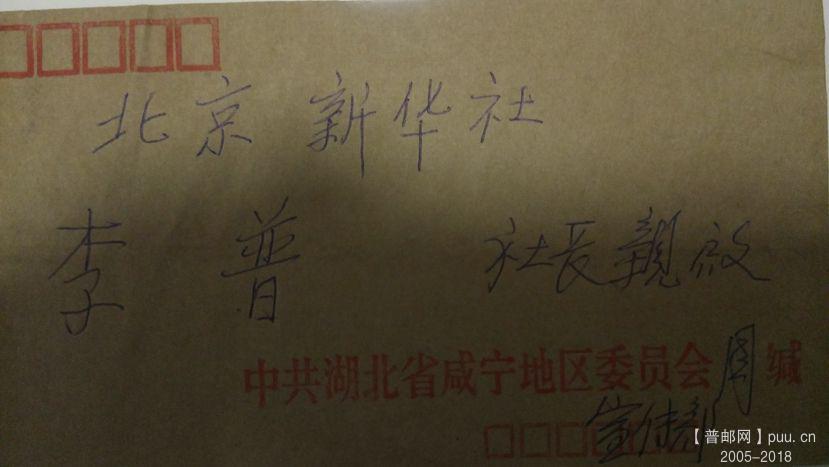 北京 新华社
李 普 社长親启
中共湖北省咸宁地区委员会周缄
宣传部
【普邮网】puu.cn
2005-2018